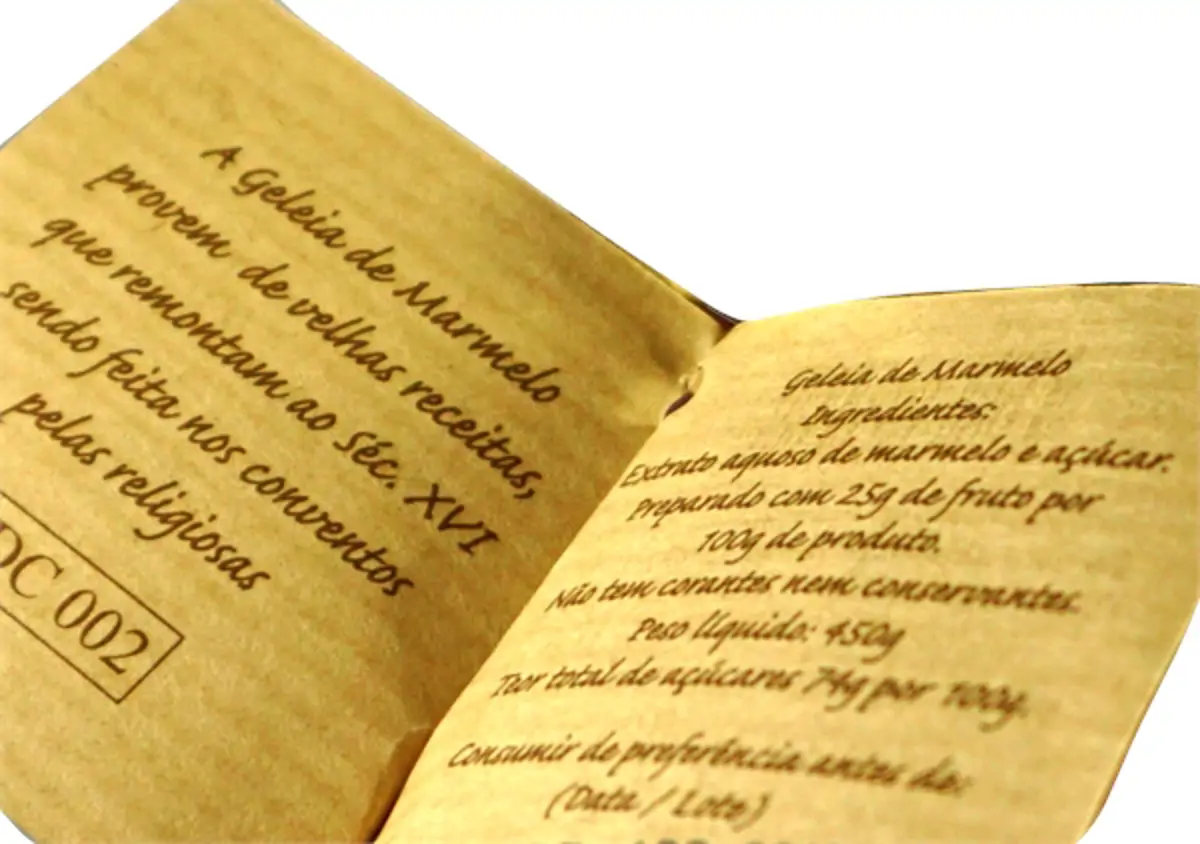 A Geleia de Marmelo
provem de velhas receitas,
que remontam ao Séc. XVI
sendo feita nos conventos
pelas religiosas
DC 002
Geleia de Marmelo
Ingredientes:
Extrato aquoso de marmelo e açúcar.
Preparado com 25g de fruto por
100g de produto.
Não tem corantes nem conservantes.
Peso líquido: 450g
Teor total de açúcares 74g por 100g.
Consumir de preferência antes de:
(Data / Lote)